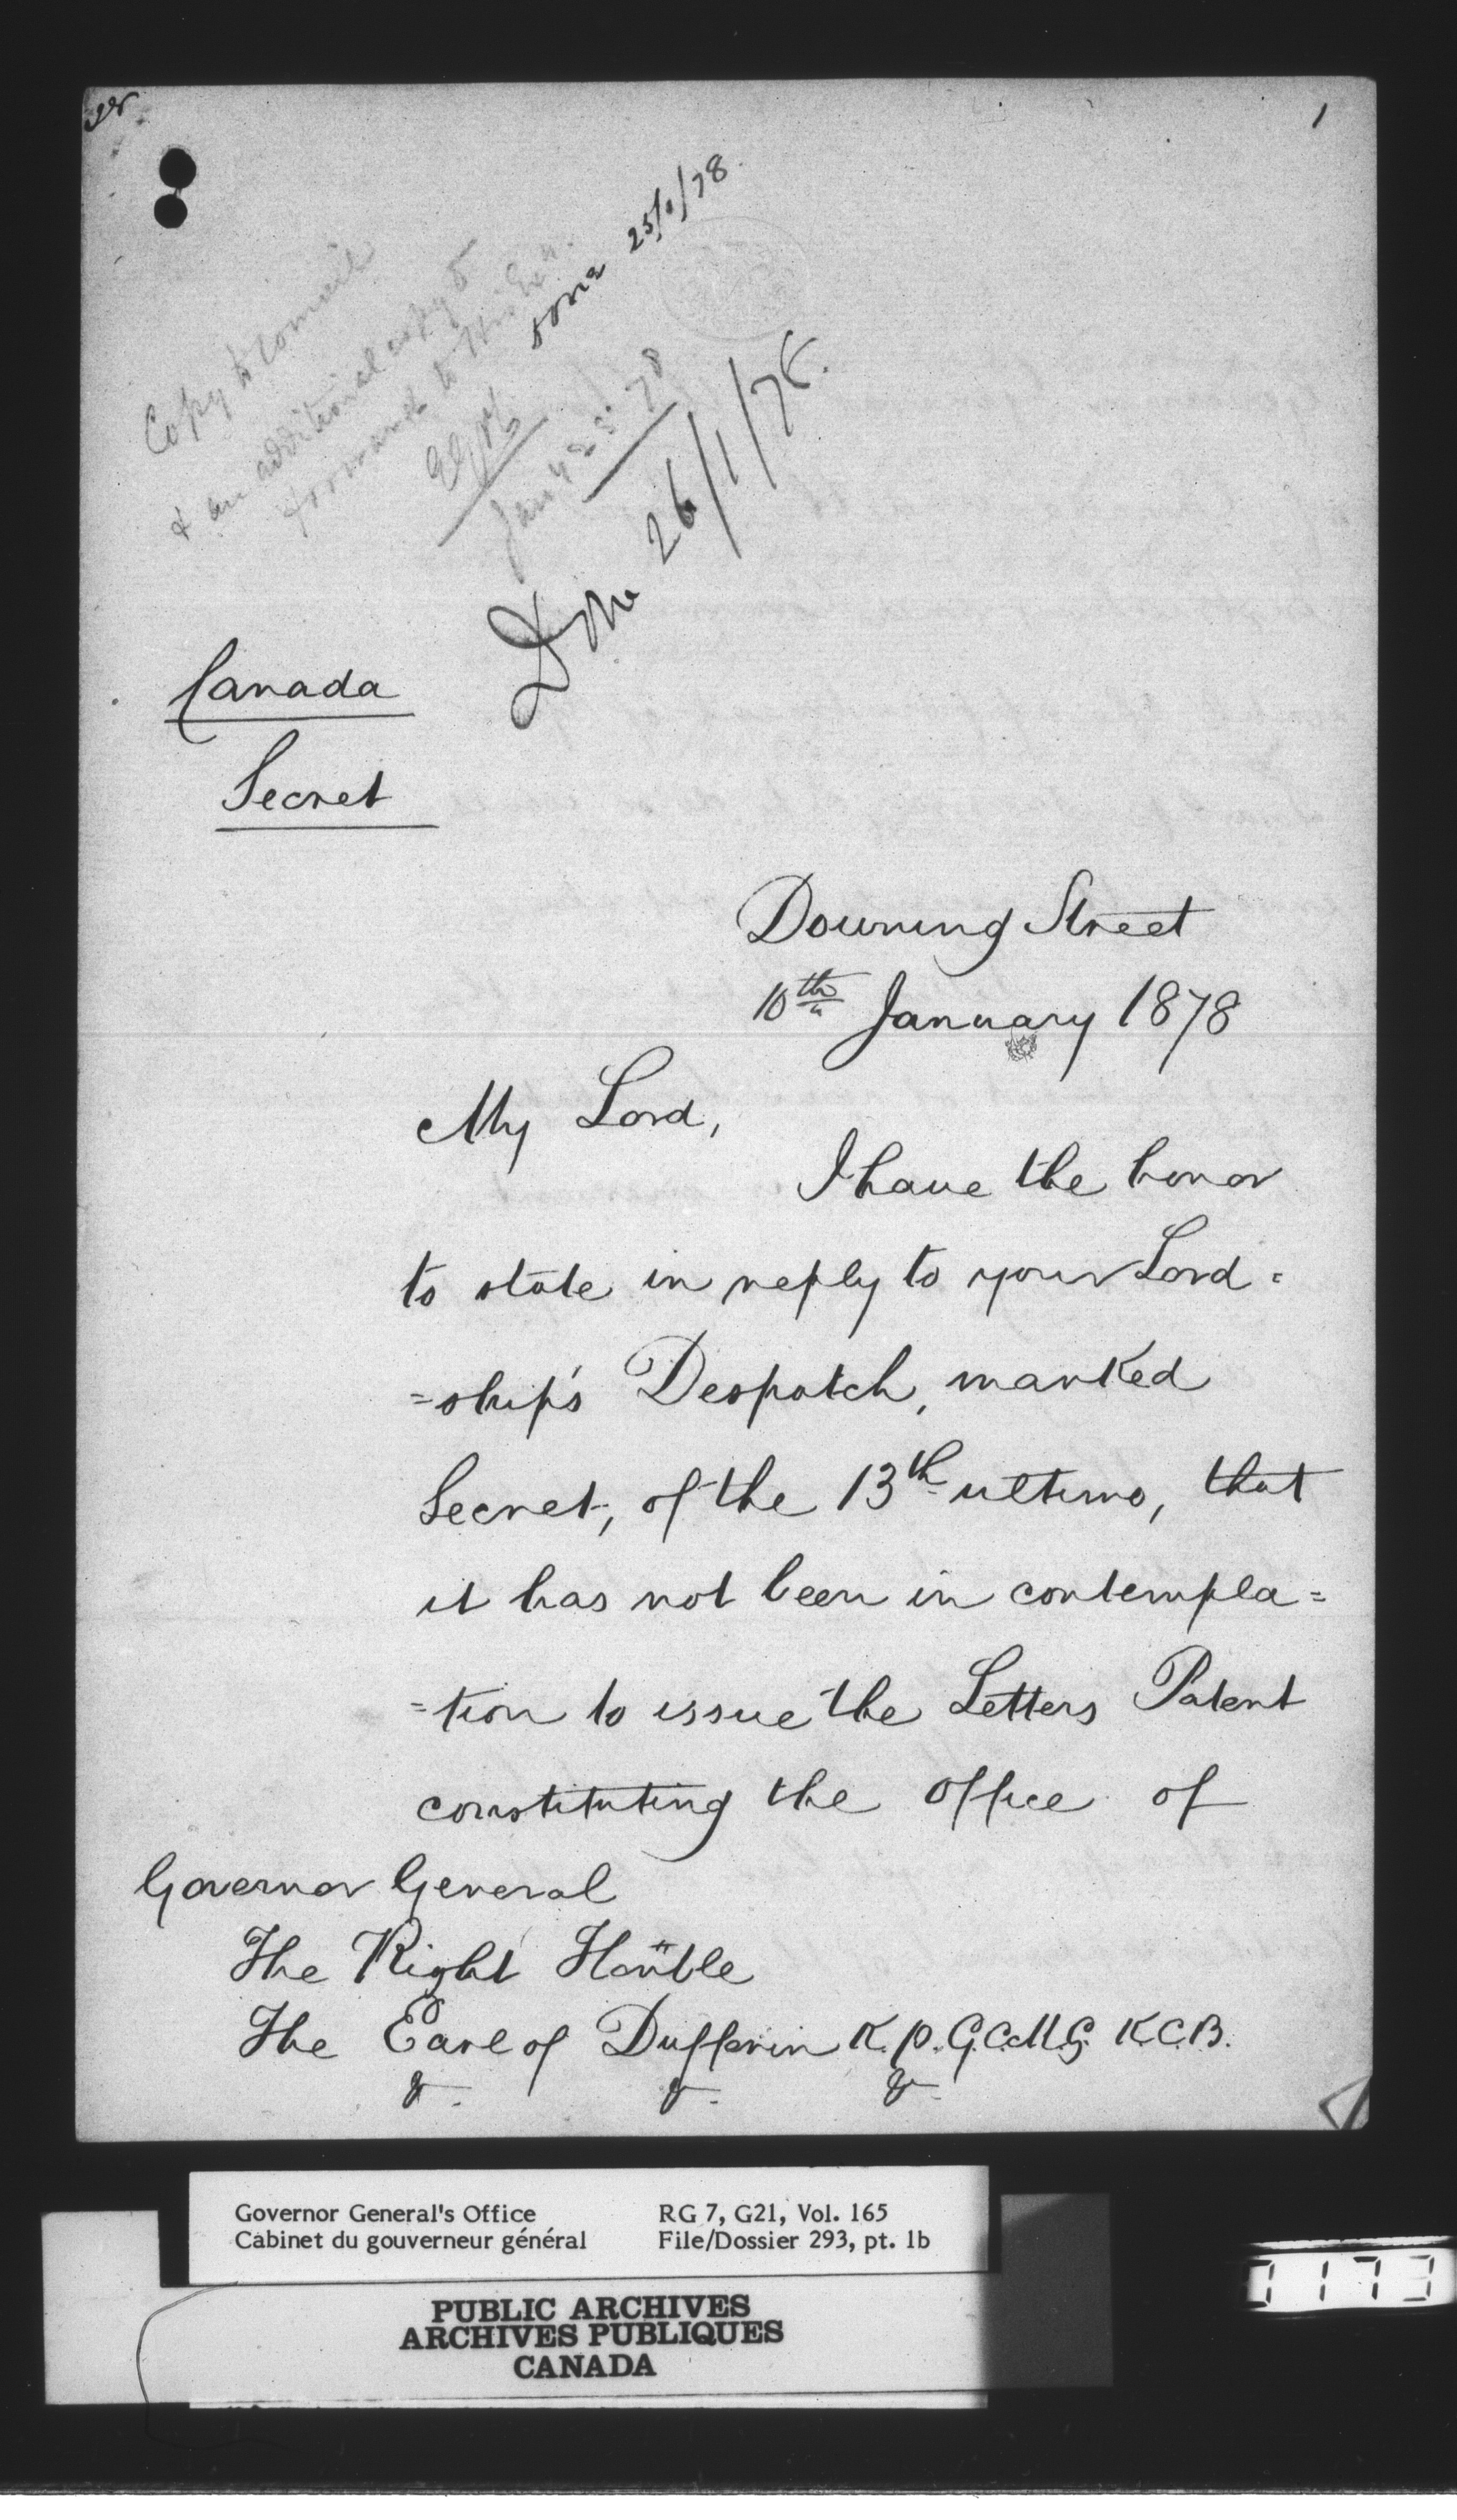 1
Copy to Council
& an additional copy to
forward to
done 25/1/78
Jany 25. 78
Done 26/1/78.
Canada
Secret
Downing Street
10th January 1878
My Lord,
I have the honor
to state in reply to your Lord=
=ship's Despatch, marked
Secret, of the 13th ultimo, that
it has not been in contempla=
=tion to issue the Letters Patent
constituting the Office of
Governor General
The Right Honble
The Earl of Dufferin K.P. G.C.M.G. K.C.B.
&. &. &.
Governor General's Office
Cabinet du gouverneur général
RG 7, G21, Vol. 165
File/Dossier 293, pt. 1b
PUBLIC ARCHIVES
ARCHIVES PUBLIQUES
CANADA